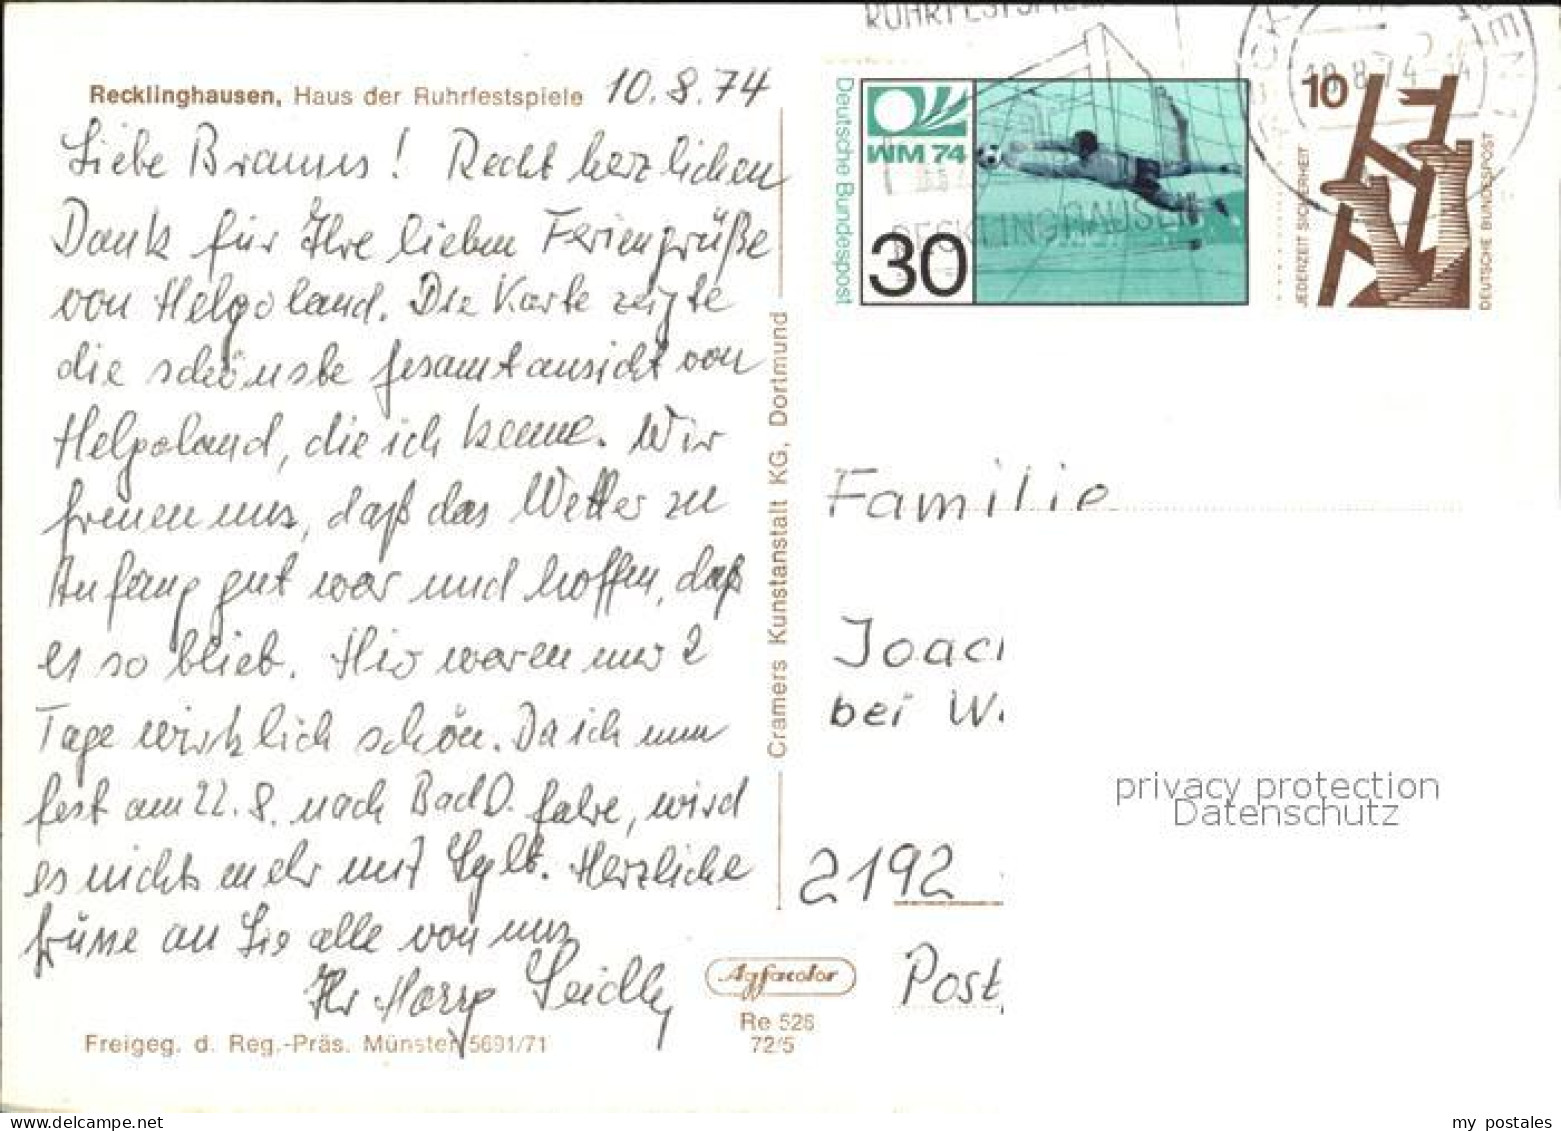 Recklinghausen, Haus der Ruhrfestspiele 10.8.74
Liebe Brauns! Recht herzlichen
Dank für Ihre lieben Feriengrüße
von Helgoland. Die Karte zeigte
die schönste Gesamtansicht von
Helgoland, die ich kenne. Wir
freuen uns, daß das Wetter zu
Anfang gut war und hoffen, daß
es so bleib. Hier waren nur 2
Tage wirklich schön. Da ich nun
fest am 22.8. nach Bad O. fahre, wird
es nichts mehr mit Sylt. Herzliche
Grüsse an Sie alle von uns
Ihr Harry
Freigeg. d. Reg.-Präs. Münster 5691/71
Cramers Kunstanstalt KG, Dortmund
Agfacolor
Re 526
72/5
RUHRFESTSPIELE
RECKLINGHAUSEN
Deutsche Bundespost
WM 74
30
10
JEDERZEIT SICHERHEIT
DEUTSCHE BUNDESPOST
Familie
Joachi
bei W.
2192
Post
privacy protection
Datenschutz
my postales